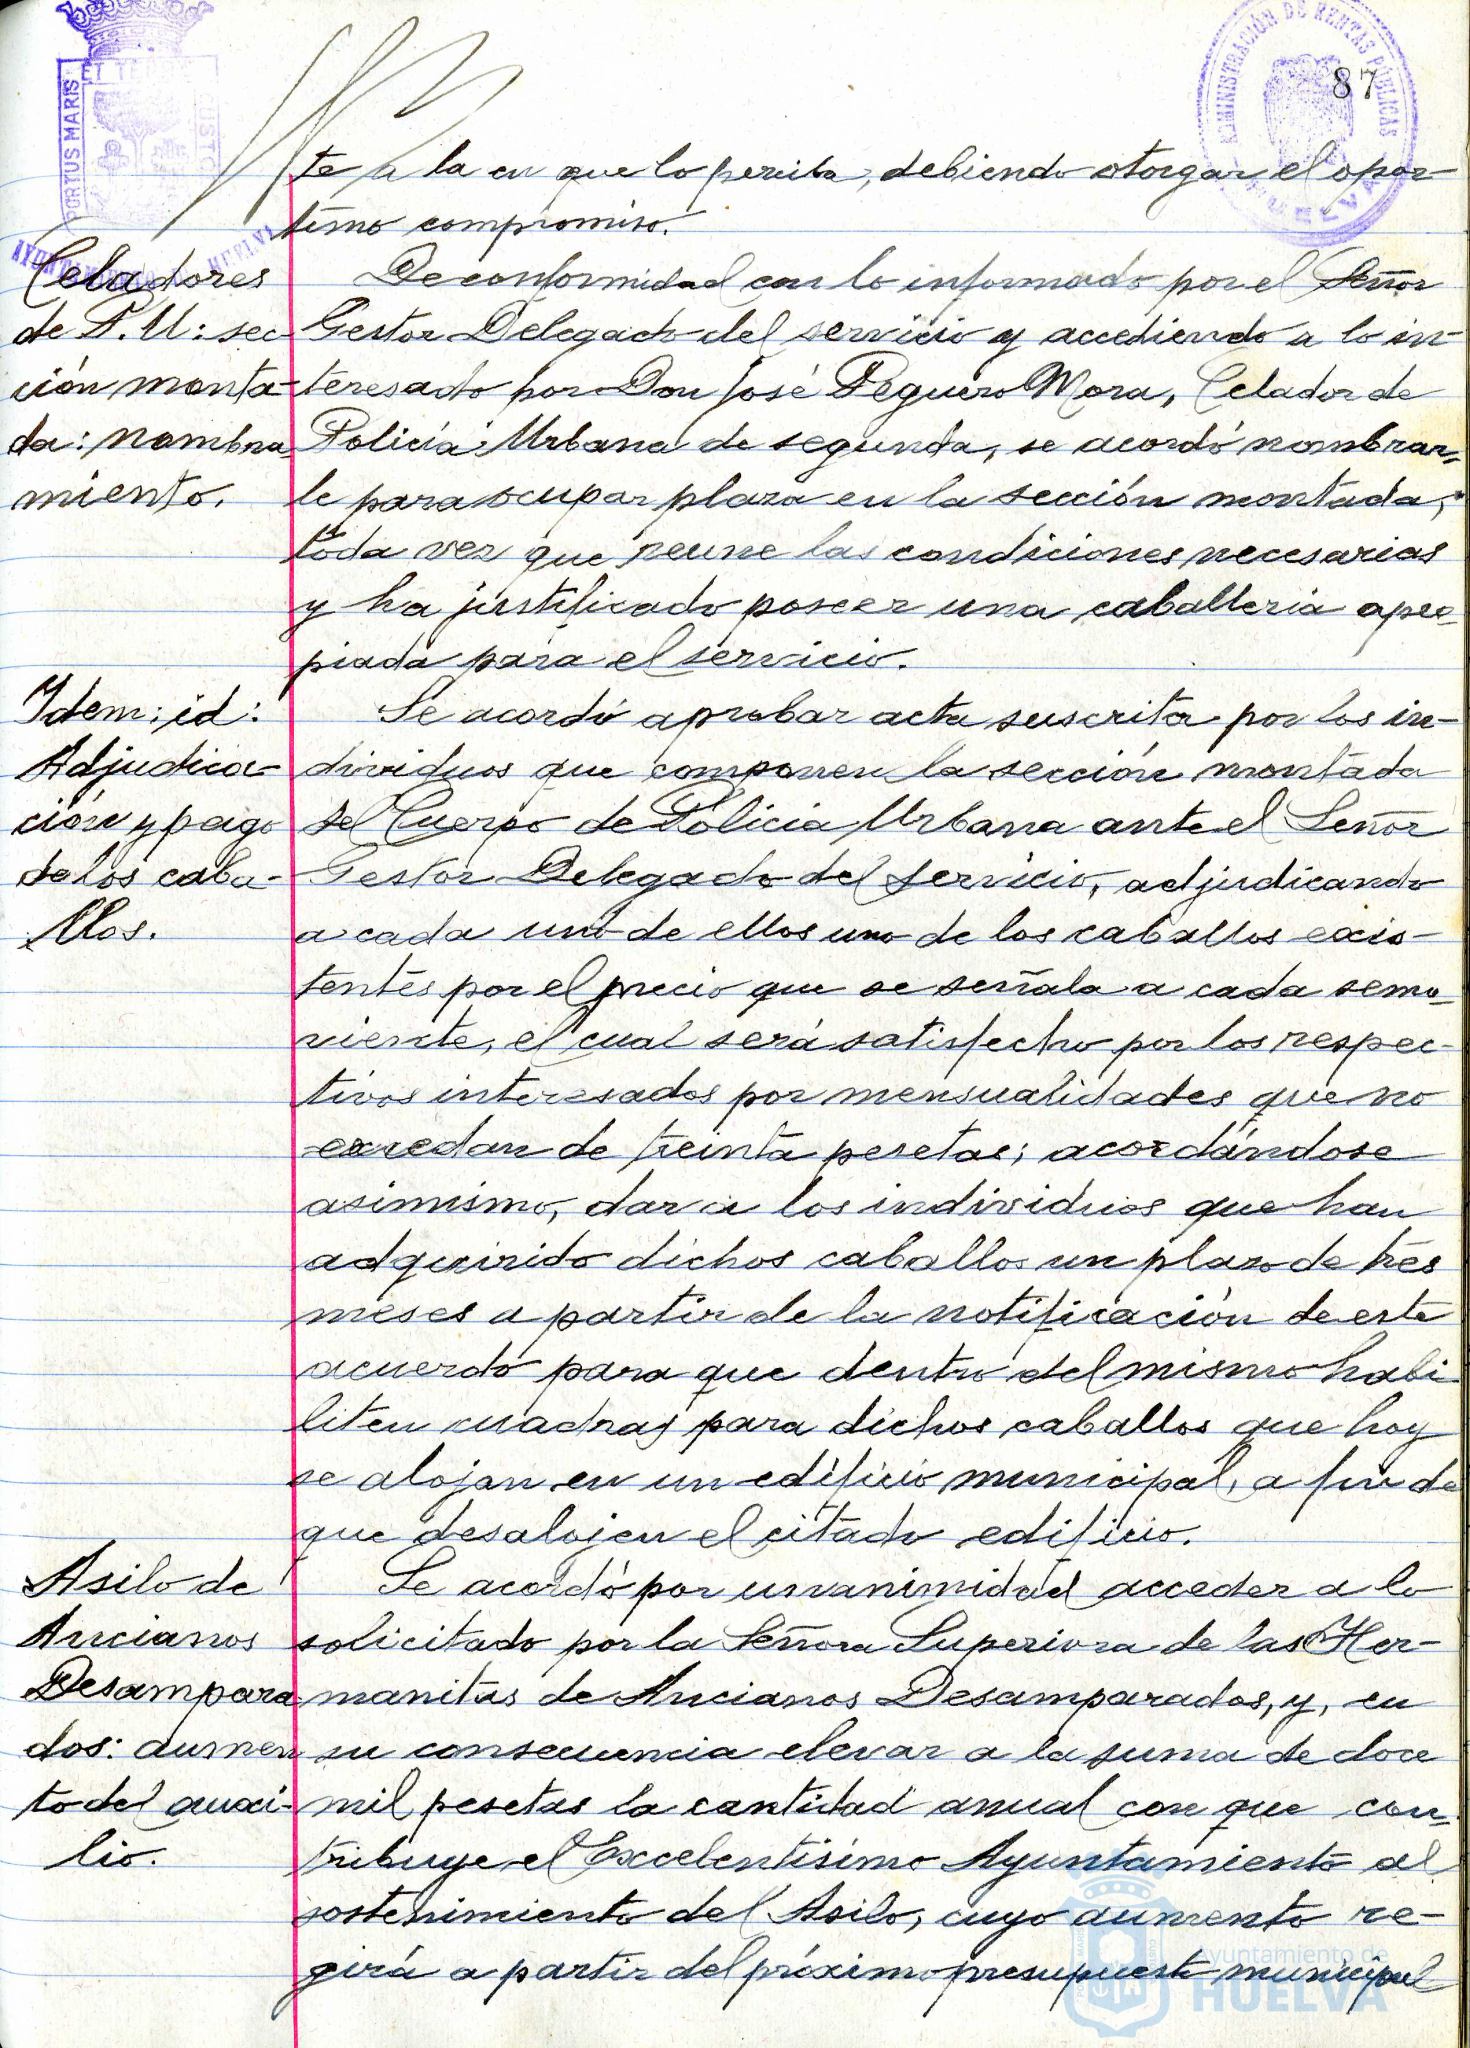 87
PORTUS MARIS
ET TERRÆ
CUSTO
AYUNTAMIENTO DE HUELVA
ADMINISTRACIÓN DE RENTAS PÚBLICAS
HUELVA
te a la en que lo perciba, debiendo otorgar el opor-
tuno compromiso.
Celadores
de P. U: sec-
ción monta-
da: nombra
miento.
De conformidad con lo informado por el Señor
Gestor Delegado del servicio y accediendo a lo in-
teresado por Don José Peguero Mora, Celador de
Policía Urbana de segunda, se acordó nombrar-
le para ocupar plaza en la sección montada,
toda vez que reune las condiciones necesarias
y ha justificado poseer una caballeria apro-
piada para el servicio.
Idem: id:
Adjudica-
ción y pago
de los caba-
llos.
Se acordó aprobar acta suscrita por los in-
dividuos que componen la sección montada
del Cuerpo de Policía Urbana ante el Señor
Gestor Delegado del servicio, adjudicando
a cada uno de ellos uno de los caballos exis-
tentes por el precio que se señala a cada semo-
viente, el cual será satisfecho por los respec-
tivos interesados por mensualidades que no
excedan de treinta pesetas; acordándose
asimismo, dar a los individuos que han
adquirido dichos caballos un plazo de tres
meses a partir de la notificación de este
acuerdo para que dentro del mismo habi-
liten cuadras para dichos caballos que hoy
se alojan en un edificio municipal, a fin de
que desalojen el citado edificio.
Asilo de
Ancianos
Desampara
dos: aumen
to del auxi-
lio.
Se acordó por unanimidad acceder a lo
solicitado por la Señora Superiora de las Her-
manitas de Ancianos Desamparados, y, en
su consecuencia elevar a la suma de doce
mil pesetas la cantidad anual con que con-
tribuye el Excelentísimo Ayuntamiento al
sostenimiento del Asilo, cuyo aumento re-
girá a partir del próximo presupuesto municipal
Ayuntamiento de
HUELVA